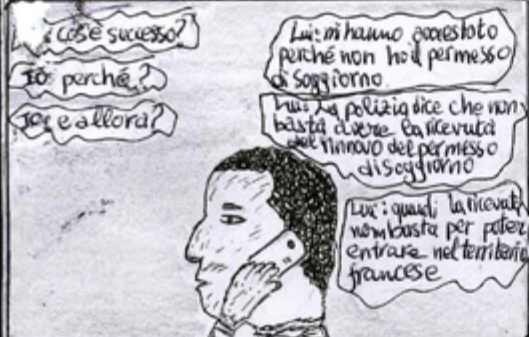 : cos'è successo?
Io: perché?
Io: e allora?
Lui: mi hanno arrestato
perché non ho il permesso
di soggiorno
Lui: La polizia dice che non
basta avere la ricevuta
del rinnovo del permesso
di soggiorno
Lui: quindi la ricevuta
non basta per poter
entrare nel territorio
francese